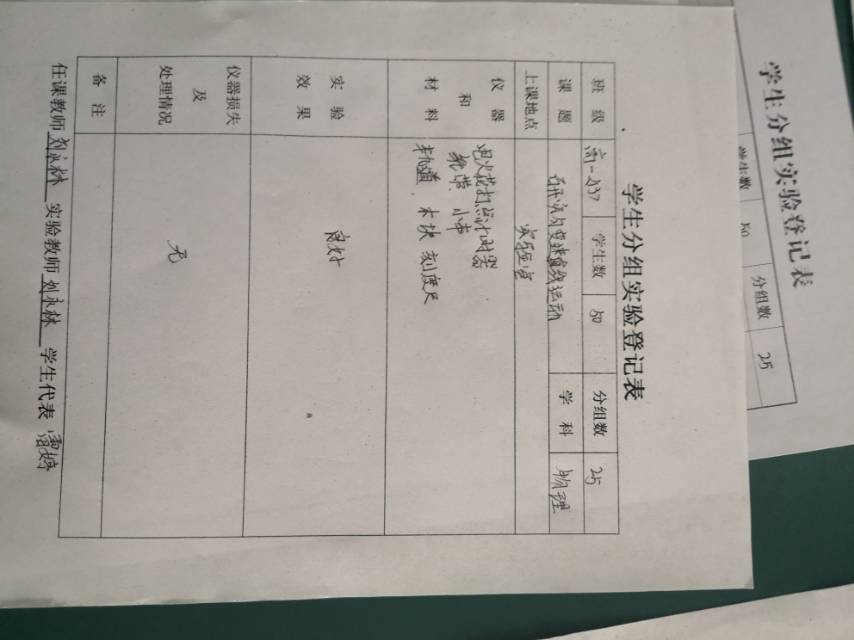 学生分组实验登记表
班级 高一437 学生数 50 分组数 25
课题 研究匀变速直线运动 学科 物理
上课地点 实验室
仪器和材料 电火花打点计时器
纸带 小车
轨道 木块 刻度尺
实验效果 良好
仪器损失及处理情况 无
备注
任课教师 刘永林 实验教师 刘永林 学生代表 雷婷
学生分组实验登记表
学生数 50 分组数 25